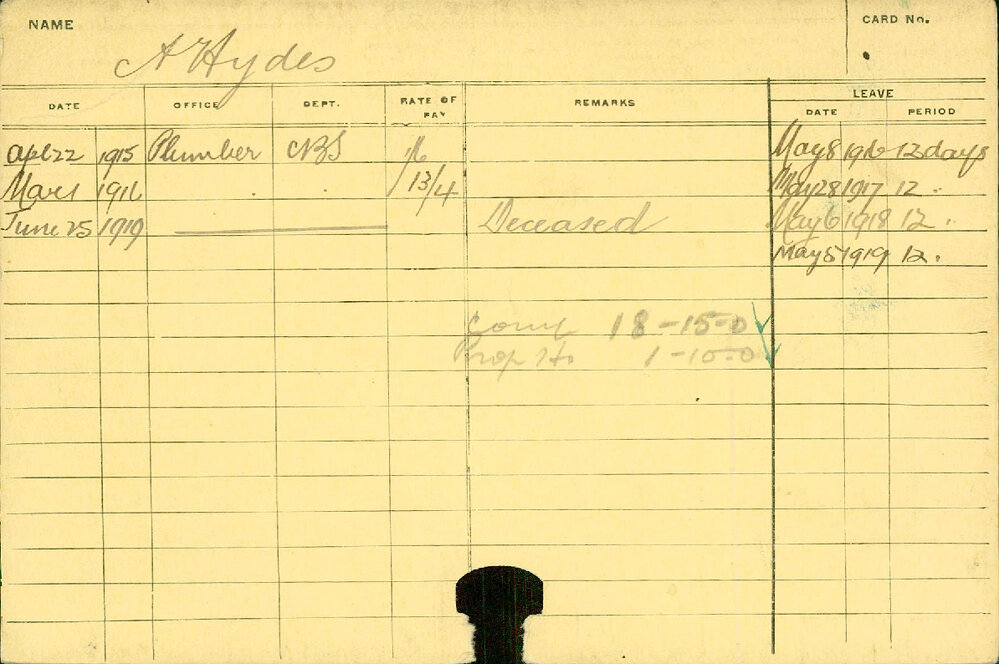 NAME
A Hydes
CARD No.
DATE OFFICE DEPT. RATE OF PAY REMARKS LEAVE
DATE PERIOD
Apl 22 1915 Plumber NBS May 8 1916 12 days
Mar 1 1916 . . 13/4 May 28 1917 12 "
June 25 1919 Deceased May 6 1918 12 "
May 5 1919 12 "
Comp 18-15-0
Prop Ho 1-10-0